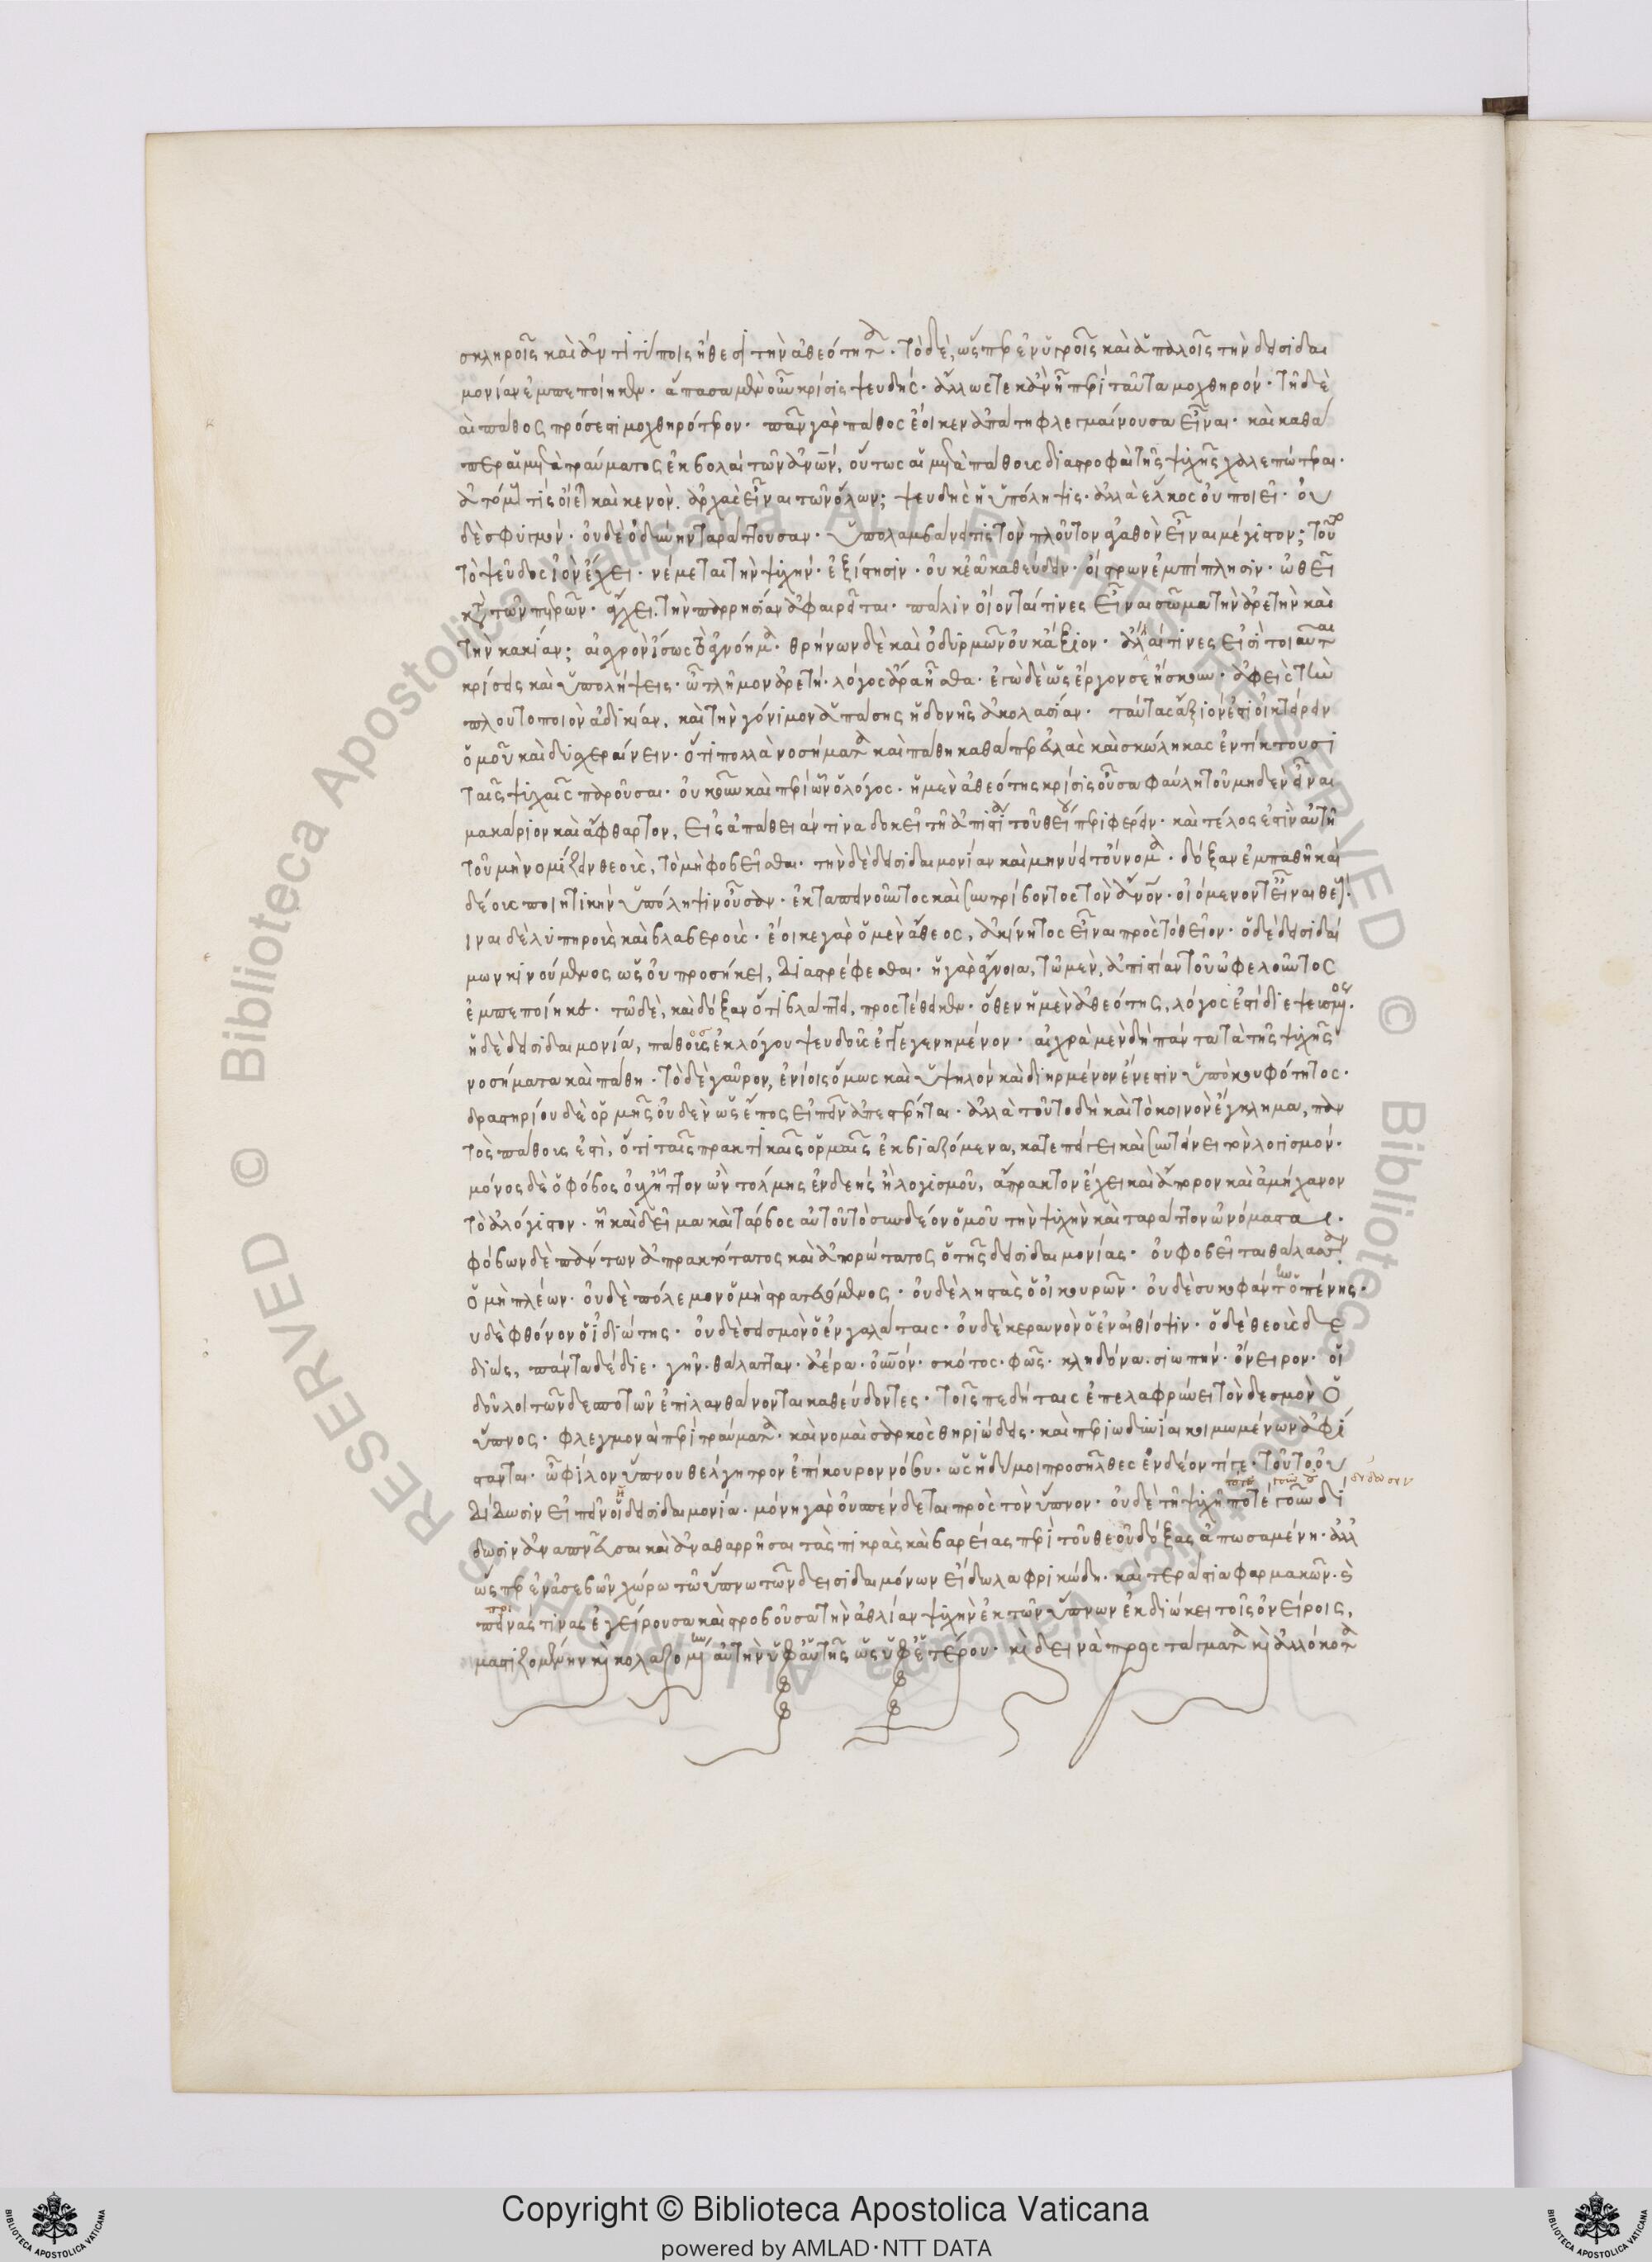 σκληροῖς καὶ ἀντιτύποις ἤθεσι τὴν ἀθεότητα. τὸ δὲ, ὥσπερ ἐν ὑγροῖς καὶ ἁπαλοῖς τὴν δεισιδαι
μονίαν ἐμπεποίηκεν. ἅπασα μὲν οὖν κρίσις ψευδής. ἄλλως τε κἂν ᾖ περὶ ταῦτα μοχθηρόν. τῇ δὲ
καὶ πάθος πρόσεστι μοχθηρότερον. πᾶν γὰρ πάθος ἔοικεν ἀπάτη φλεγμαίνουσα εἶναι. καὶ καθά
περ αἱ μετὰ τραύματος ἐκβολαὶ τῶν ἄρθρων, οὕτως αἱ μετὰ πάθους διαστροφαὶ τῆς ψυχῆς χαλεπώτεραι.
ἀτόμους τίς οἴεται καὶ κενὸν ἀρχὰς εἶναι τῶν ὅλων; ψευδὴς ἡ ὑπόληψις. ἀλλὰ ἕλκος οὐ ποιεῖ. οὐ
δὲ σφυγμόν. οὐδὲ ὀδύνην ταράττουσαν. ὑπολαμβάνει τις τὸν πλοῦτον ἀγαθὸν εἶναι μέγιστον; τοῦτο
τὸ ψεῦδος ἰὸν ἔχει. νέμεται τὴν ψυχήν. ἐξίστησιν. οὐκ ἐᾷ καθεύδειν. οἴστρων ἐμπίπλησιν. ὠθεῖ
κατὰ τῶν πετρῶν. ἄγχει. τὴν παρρησίαν ἀφαιρεῖται. πάλιν οἴονταί τινες εἶναι σῶμα τὴν ἀρετὴν καὶ
τὴν κακίαν; αἰσχρὸν ἴσως τὸ ἀγνόημα. θρήνων δὲ καὶ ὀδυρμῶν οὐκ ἄξιον. ἀλλ' αἵ τινες εἰσὶ τοιαῦται
κρίσεις καὶ ὑπολήψεις. ὦ τλῆμον ἀρετή. λόγος ἄρα ἦσθα. ἐγὼ δὲ ὡς ἔργον σε ἤσκουν. ἀφεὶς τὴν
πλουτοποιὸν ἀδικίαν, καὶ τὴν γόνιμον ἁπάσης ἡδονῆς ἀκολασίαν. ταύτας ἄξιόν ἐστι οἰκτείρειν
ὁμοῦ καὶ δυσχεραίνειν. ὅτι πολλὰ νοσήματα καὶ πάθη καθάπερ εὐλὰς καὶ σκώληκας ἐντίκτουσι
ταῖς ψυχαῖς παροῦσαι. οὐκοῦν καὶ περὶ ὧν ὁ λόγος. ἡ μὲν ἀθεότης κρίσις οὖσα φαύλη τοῦ μηδὲν εἶναι
μακάριον καὶ ἄφθαρτον, εἰς ἀπάθειάν τινα δοκεῖ τῇ ἀπιστίᾳ τοῦ θείου περιφέρειν. καὶ τέλος ἐστὶν αὐτῇ
τοῦ μὴ νομίζειν θεοὺς, τὸ μὴ φοβεῖσθαι. τὴν δὲ δεισιδαιμονίαν καὶ μηνύει τοὔνομα. δόξαν ἐμπαθῆ καὶ
δέους ποιητικὴν ὑπόληψιν οὖσαν. ἐκταπεινοῦντος καὶ συντρίβοντος τὸν ἄνθρωπον. οἰόμενόν τε εἶναι θεούς.
εἶναι δὲ λυπηροὺς καὶ βλαβερούς. ἔοικε γὰρ ὁ μὲν ἄθεος, ἀκίνητος εἶναι πρὸς τὸ θεῖον. ὁ δὲ δεισιδαί
μων κινούμενος ὡς οὐ προσήκει, διαστρέφεσθαι. ἡ γὰρ ἄγνοια, τῷ μὲν, ἀπιστίαν τοῦ ὠφελοῦντος
ἐμπεποίηκε. τῷ δὲ, καὶ δόξαν ὅτι βλάπτει, προστέθεικεν. ὅθεν ἡ μὲν ἀθεότης, λόγος ἐστὶ διεψευσμένος.
ἡ δὲ δεισιδαιμονία, πάθος ἐκ λόγου ψευδοῦς ἐγγεγενημένον. αἰσχρὰ μὲν δὴ πάντα τὰ τῆς ψυχῆς
νοσήματα καὶ πάθη. τὸ δὲ γαῦρον, ἐνίοις ὅμως καὶ ὑψηλὸν καὶ διηρμένον ἔνεστιν ὑπὸ κουφότητος.
δραστηρίου δὲ ὁρμῆς οὐδὲν ὡς ἔπος εἰπεῖν ἀπεστέρηται. ἀλλὰ τοῦτο δὴ καὶ τὸ κοινὸν ἔγκλημα, παν
τὸς πάθους ἐστὶ, ὅτι ταῖς πρακτικαῖς ὁρμαῖς ἐκβιαζόμενα, κατεπείγει καὶ συντείνει τὸν λογισμόν.
μόνος δὲ ὁ φόβος οὐχ ἧττον ὢν τόλμης ἐνδεὴς ἢ λογισμοῦ, ἄπρακτον ἔχει καὶ ἄπορον καὶ ἀμήχανον
τὸ ἀλόγιστον. ᾗ καὶ δεῖμα καὶ τάρβος αὐτοῦ τὸ συνδέον ὁμοῦ τὴν ψυχὴν καὶ ταράττον ὠνόμασται.
φόβων δὲ πάντων ἀπρακτότατος καὶ ἀπορώτατος ὁ τῆς δεισιδαιμονίας. οὐ φοβεῖται θάλασσαν
ὁ μὴ πλέων. οὐδὲ πόλεμον ὁ μὴ στρατευόμενος. οὐδὲ λῃστὰς ὁ οἰκουρῶν. οὐδὲ συκοφάντην ὁ πένης.
οὐδὲ φθόνον ὁ ἰδιώτης. οὐδὲ σεισμὸν ὁ ἐν γαλάταις. οὐδὲ κεραυνὸν ὁ ἐν αἰθίοψιν. ὁ δὲ θεοὺς δε
διὼς, πάντα δέδιε. γῆν. θάλατταν. ἀέρα. οὐρανόν. σκότος. φῶς. κληδόνα. σιωπήν. ὄνειρον. οἱ
δοῦλοι τῶν δεσποτῶν ἐπιλανθάνονται καθεύδοντες. τοῖς πεδήταις ἐπελαφρύνει τὸν δεσμὸν ὁ
ὕπνος. φλεγμοναὶ περὶ τραύματα. καὶ νομαὶ σαρκὸς θηριώδεις. καὶ περιωδυνίαι κοιμωμένων ἀφί
στανται. ὦ φίλον ὕπνου θέλγητρον ἐπίκουρον νόσου. ὡς ἡδύ μοι προσῆλθες ἐν δέοντί γε. τοῦτο οὐ
δίδωσιν εἰπεῖν ἡ δεισιδαιμονία. μόνη γὰρ οὐ σπένδεται πρὸς τὸν ὕπνον. οὐδὲ τῇ ψυχῇ ποτέ γοῦν δί
δωσιν ἀναπνεῦσαι καὶ ἀναθαρρῆσαι τὰς πικρὰς καὶ βαρείας περὶ τοῦ θεοῦ δόξας ἀπωσαμένη. ἀλλ'
ὥσπερ ἐν ἀσεβῶν χώρῳ τῷ ὕπνῳ τῶν δεισιδαιμόνων εἴδωλα φρικώδη. καὶ τεράστια φαρμακῶν. καὶ
ποινάς τινας ἐγείρουσα καὶ στροβοῦσα τὴν ἀθλίαν ψυχὴν ἐκ τῶν ὕπνων ἐκδιώκει τοῖς ὀνείροις,
μαστιζομένην καὶ κολαζομένην αὐτὴν ὑφ' αὑτῆς ὡς ὑφ' ἑτέρου. καὶ δεινὰ προστάγματα καὶ ἀλλόκοτα
Copyright © Biblioteca Apostolica Vaticana
powered by AMLAD·NTT DATA